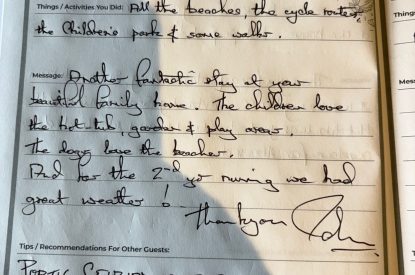 Things / Activities You Did: All the beaches, the cycle routes,
the Children's park & some walks.
Message: Another fantastic stay at your
beautiful family home. The children love
the hot tub, garden & play areas.
The dogs love the beaches.
And for the 2nd yr running we had
great weather!
Thankyou
Tips / Recommendations For Other Guests:
Mess